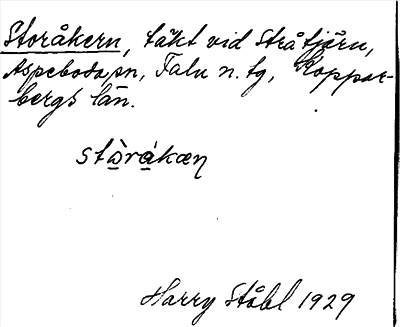 Storåkern, täkt vid Stråtjärn,
Aspeboda sn, Falu n. tg, Koppar-
bergs län.
stò̱rá̱kæṇ
Harry Ståhl 1929